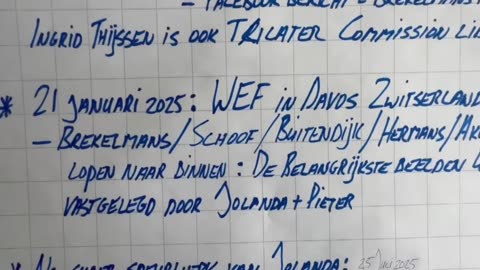 – FACEBOOK BERICHT – BREKELMANS
INGRID THIJSSEN IS OOK TRILATER COMMISSION LI
* 21 JANUARI 2025: WEF IN DAVOS ZWITSERLAND
– BREKELMANS/SCHOOF/BUITENDIJK/HERMANS/
LOPEN NAAR BINNEN: DE BELANGRIJKSTE BEELDEN
VASTGELEGD DOOR JOLANDA + PIETER
VAN JOLANDA: 25 JULI 2025